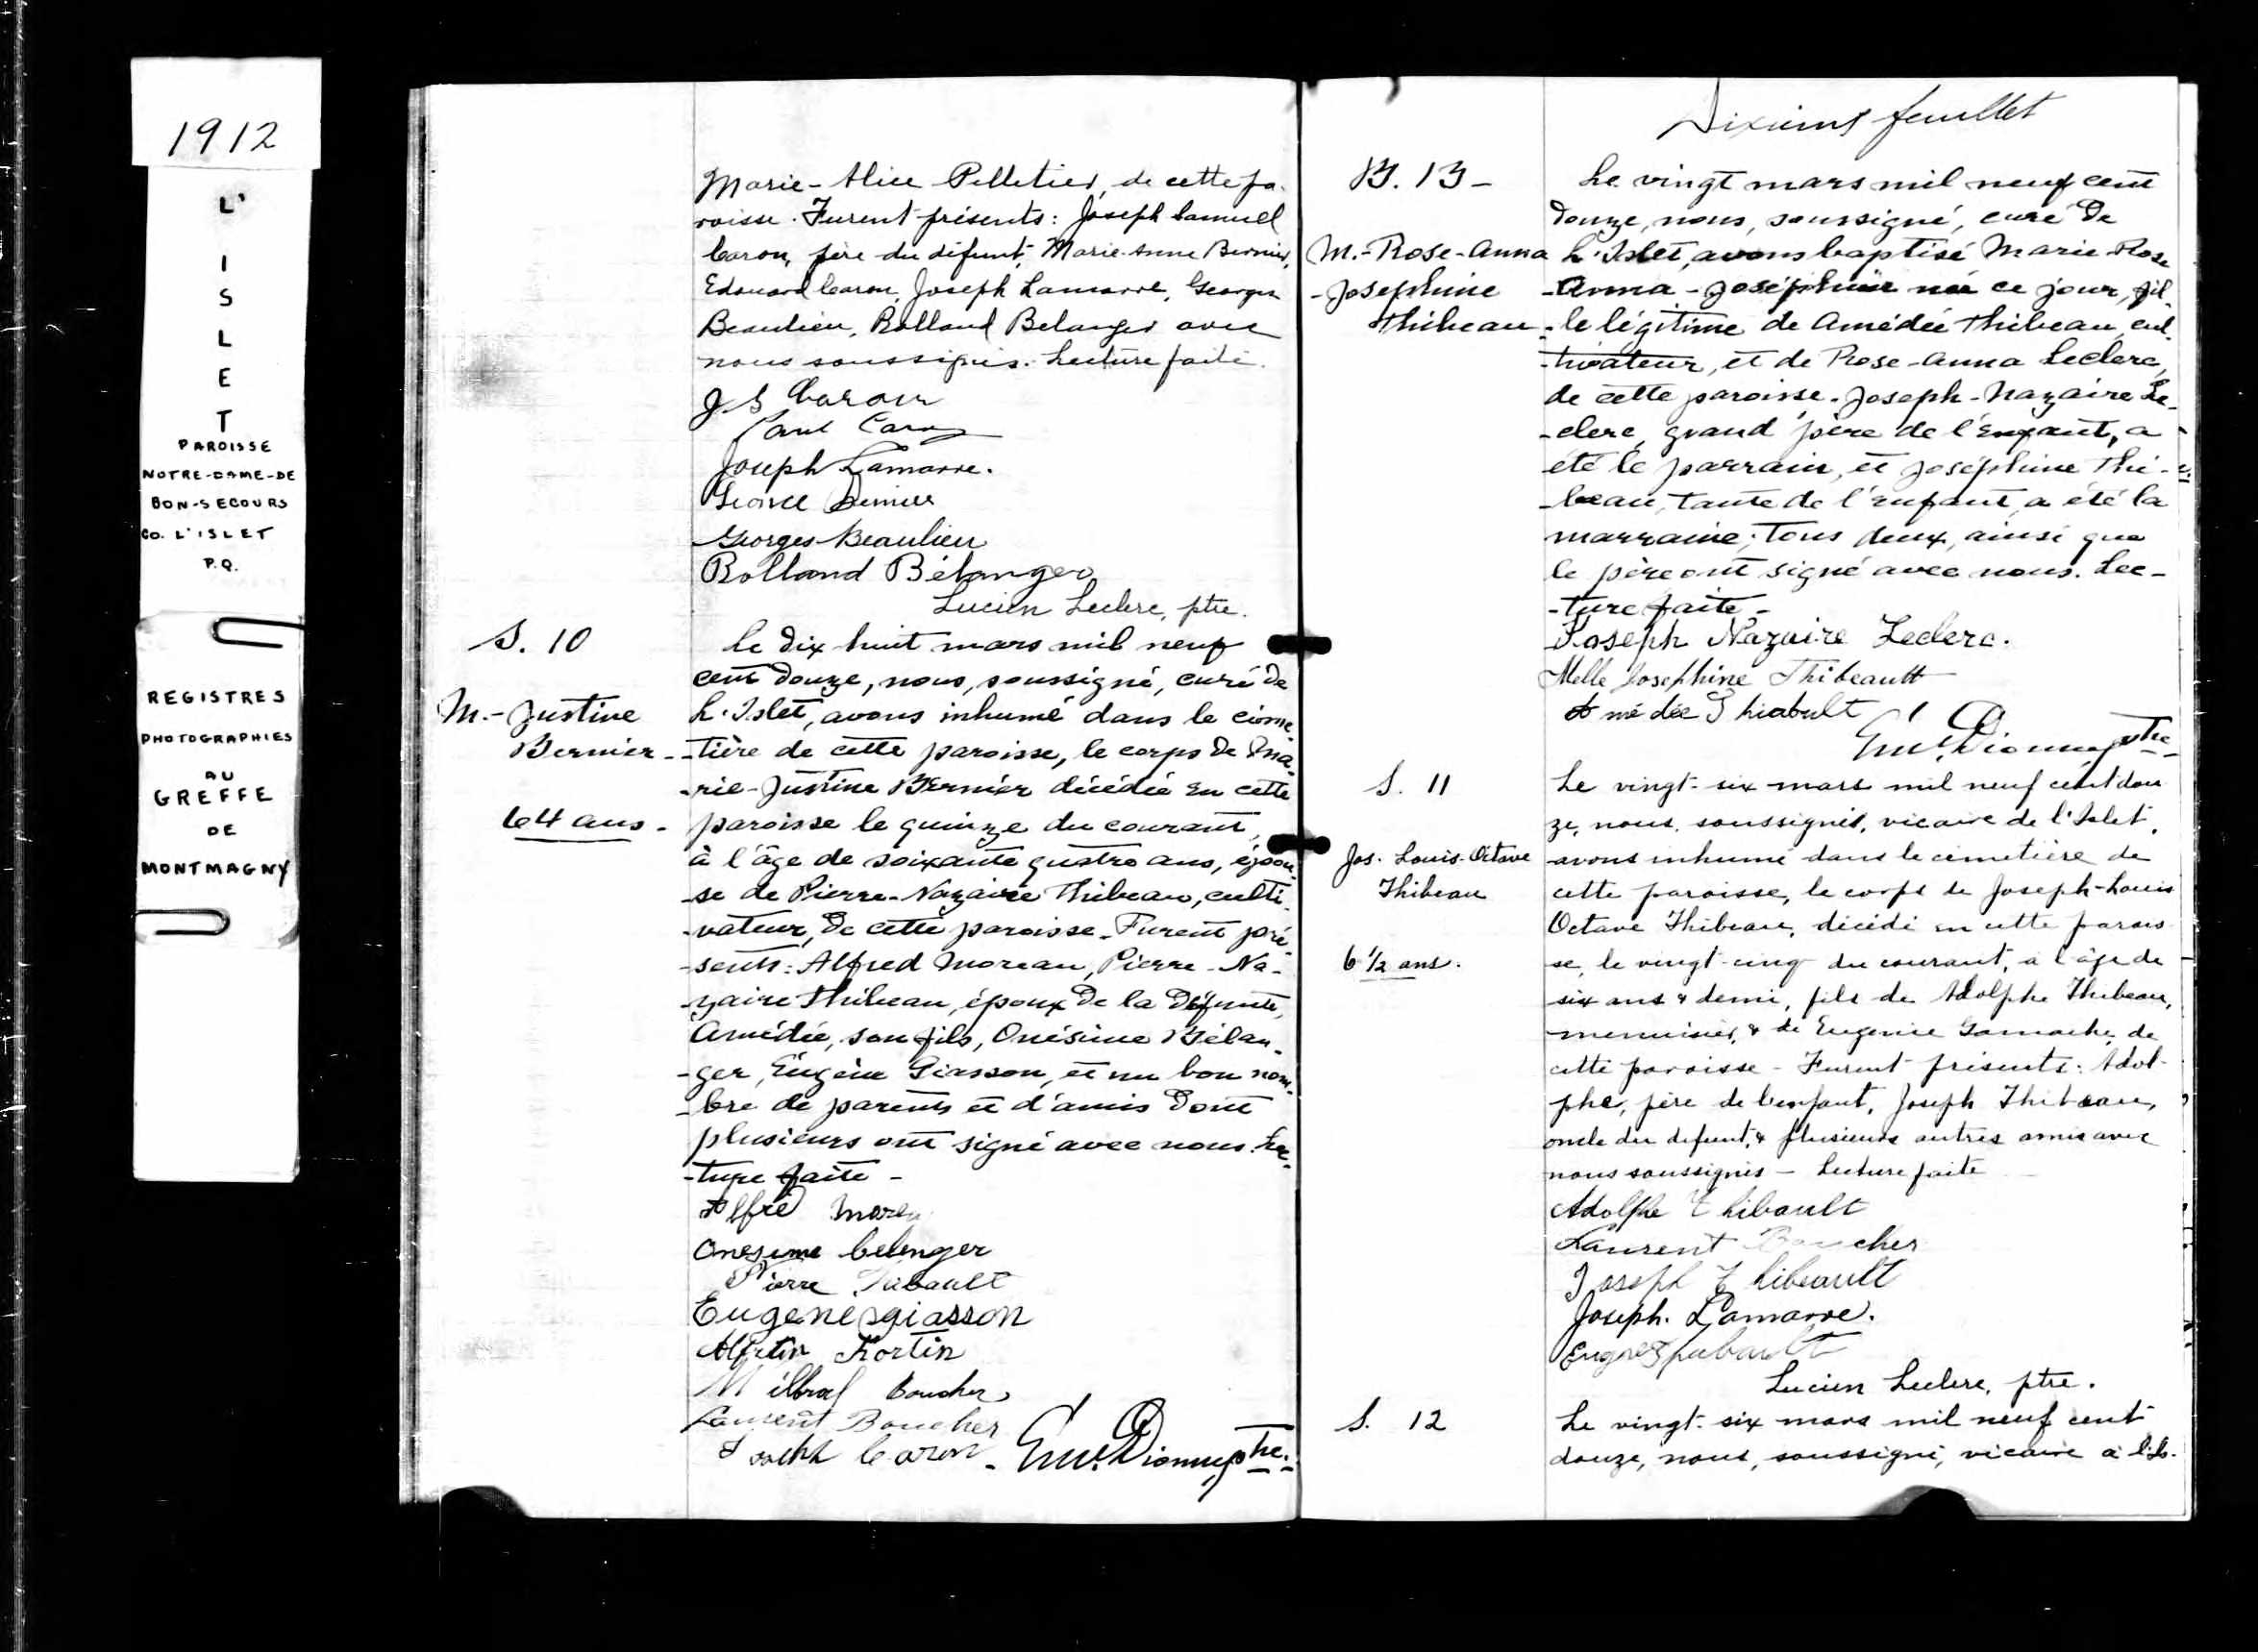 1912
L'
I
S
L
E
T
PAROISSE
NOTRE-DAME-DE
BON-SECOURS
CO. L'ISLET
P.Q.
REGISTRES
PHOTOGRAPHIES
AU
GREFFE
DE
MONTMAGNY
Marie-Alice Pelletier, de cette pa-
roisse. Furent présents: Joseph Samuel
Caron, père du défunt, Marie-Anne Bernier,
Edouard Caron, Joseph Lamarre, Georges
Beaulieu, Rolland Belanger avec
nous soussignés. Lecture faite.
J S Caron
Paul Caron
Joseph Lamarre.
Bernier
Georges Beaulieu
Rolland Bélanger
Lucien Leclerc, ptre.
S. 10
M.-Justine
Bernier-
64 ans.
Le dix huit mars mil neuf
cent douze, nous, soussigné, curé de
L'Islet, avons inhumé dans le cime-
-tière de cette paroisse, le corps de Ma-
-rie-Justine Bernier décédée en cette
paroisse le quinze du courant,
à l'âge de soixante quatre ans, épou-
-se de Pierre-Nazaire Thibeau, culti-
-vateur, de cette paroisse. Furent pré-
-sents: Alfred Moreau, Pierre-Na-
-zaire Thibeau, époux de la défunte,
Amédée, son fils, Onésime Bélan-
-ger, Eugène Giasson, et un bon nom-
-bre de parents et d'amis dont
plusieurs ont signé avec nous. Lec-
-ture faite -
Alfred
Onesime belenger
Pierre
Eugene giasson
Fortin
Boucher
Laurent Boucher
Caron - Em. Dionne, ptre.
Dixième feuillet
B. 13-
M.-Rose-Anna
-Josephine
Thibeau
Le vingt mars mil neuf cent
douze, nous, soussigné, curé de
L'Islet, avons baptisé Marie-Rose
-Anna-Joséphine née ce jour, fil-
-le légitime de Amédée Thibeau, cul-
-tivateur, et de Rose-Anna Leclerc,
de cette paroisse. Joseph-Nazaire Le-
-clerc, grand père de l'enfant, a
été le parrain, et Joséphine Thi-
-beau, tante de l'enfant, a été la
marraine; tous deux, ainsi que
le père ont signé avec nous. Lec-
-ture faite -
Joseph Nazaire Leclerc.
Melle Josephine Thibeault
Amédée Thiabult
Em. Dionne, ptre
S. 11
Jos. Louis-Octave
Thibeau
6 1/2 ans.
Le vingt-six mars mil neuf cent dou
ze, nous, soussignés, vicaire de l'Islet,
avons inhumé dans le cimetière de
cette paroisse, le corps de Joseph-Louis
Octave Thibeau, décédé en cette parois
se, le vingt-cinq du courant, à l'âge de
six ans & demi, fils de Adolphe Thibeau,
menuisier, & de Eugenie Gamache, de
cette paroisse - Furent présents: Adol-
phe, père de l'enfant, Joseph Thibeau,
oncle du defunt, & plusieurs autres amis avec
nous soussignés - Lecture faite
Adolphe Thibault
Laurent Boucher
Joseph Thibeault
Joseph. Lamarre.
Lucien Leclerc, ptre.
S. 12
Le vingt-six mars mil neuf cent
douze, nous, soussigné, vicaire à l'Is-